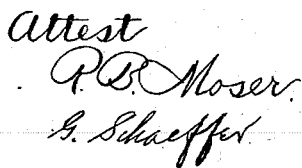 Attest
P. B. Moser.
G. Schaeffer